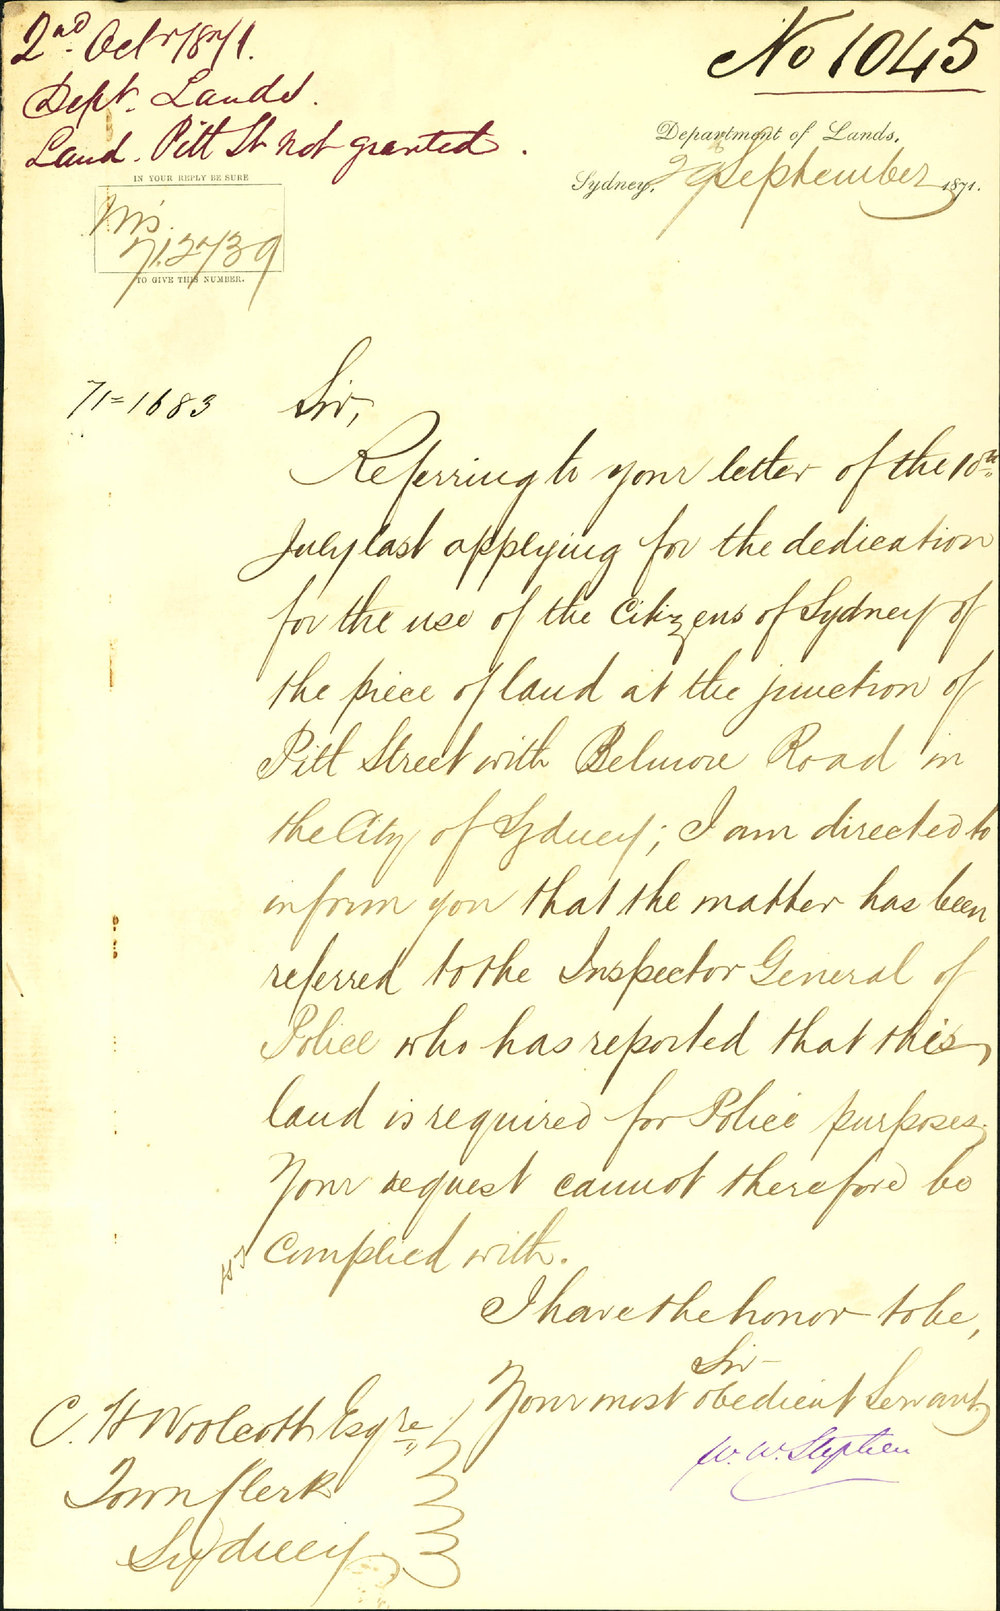 2nd Octr 1871.
Dept. Lands.
Land. Pitt St not granted.
No 1045
Department of Lands,
Sydney, 29 September 1871.
IN YOUR REPLY BE SURE
Mis.
71.2739
TO GIVE THIS NUMBER.
71=1683
Sir,
Referring to your letter of the 10th
July last applying for the dedication
for the use of the Citizens of Sydney of
the piece of land at the junction of
Pitt Street with Belmore Road in
the City of Sydney; I am directed to
inform you that the matter has been
referred to the Inspector General of
Police who has reported that this
land is required for Police purposes.
Your request cannot therefore be
complied with.
I have the honor to be,
Sir
Your most obedient Servant
W. W. Stephen
C. H Woolcott Esqre
Town Clerk
Sydney